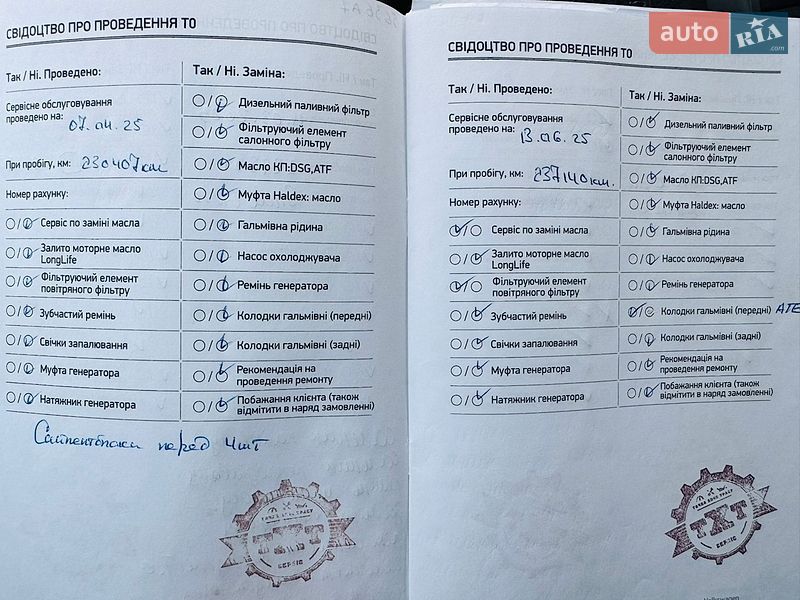 СВІДОЦТВО ПРО ПРОВЕДЕННЯ ТО
Так / Ні. Проведено:
Сервісне обслуговування
проведено на:
07.04.25
При пробігу, км: 230407км
Номер рахунку:
Сервіс по заміні масла
Залито моторне масло
LongLife
Фільтруючий елемент
повітряного фільтру
Зубчастий ремінь
Свічки запалювання
Муфта генератора
Натяжник генератора
Так / Ні. Заміна:
Дизельний паливний фільтр
Фільтруючий елемент
салонного фільтру
Масло КП:DSG,ATF
Муфта Haldex: масло
Гальмівна рідина
Насос охолоджувача
Ремінь генератора
Колодки гальмівні (передні)
Колодки гальмівні (задні)
Рекомендація на
проведення ремонту
Побажання клієнта (також
відмітити в наряд замовленні)
перед 4шт
ТХТ
СЕРВІС
СВІДОЦТВО ПРО ПРОВЕДЕННЯ ТО
Так / Ні. Проведено:
Сервісне обслуговування
проведено на:
13.06.25
При пробігу, км: 237140км.
Номер рахунку:
Сервіс по заміні масла
Залито моторне масло
LongLife
Фільтруючий елемент
повітряного фільтру
Зубчастий ремінь
Свічки запалювання
Муфта генератора
Натяжник генератора
Так / Ні. Заміна:
Дизельний паливний фільтр
Фільтруючий елемент
салонного фільтру
Масло КП:DSG,ATF
Муфта Haldex: масло
Гальмівна рідина
Насос охолоджувача
Ремінь генератора
Колодки гальмівні (передні) ATE
Колодки гальмівні (задні)
Рекомендація на
проведення ремонту
Побажання клієнта (також
відмітити в наряд замовленні)
ТХТ
СЕРВІС
auto RIA
.com